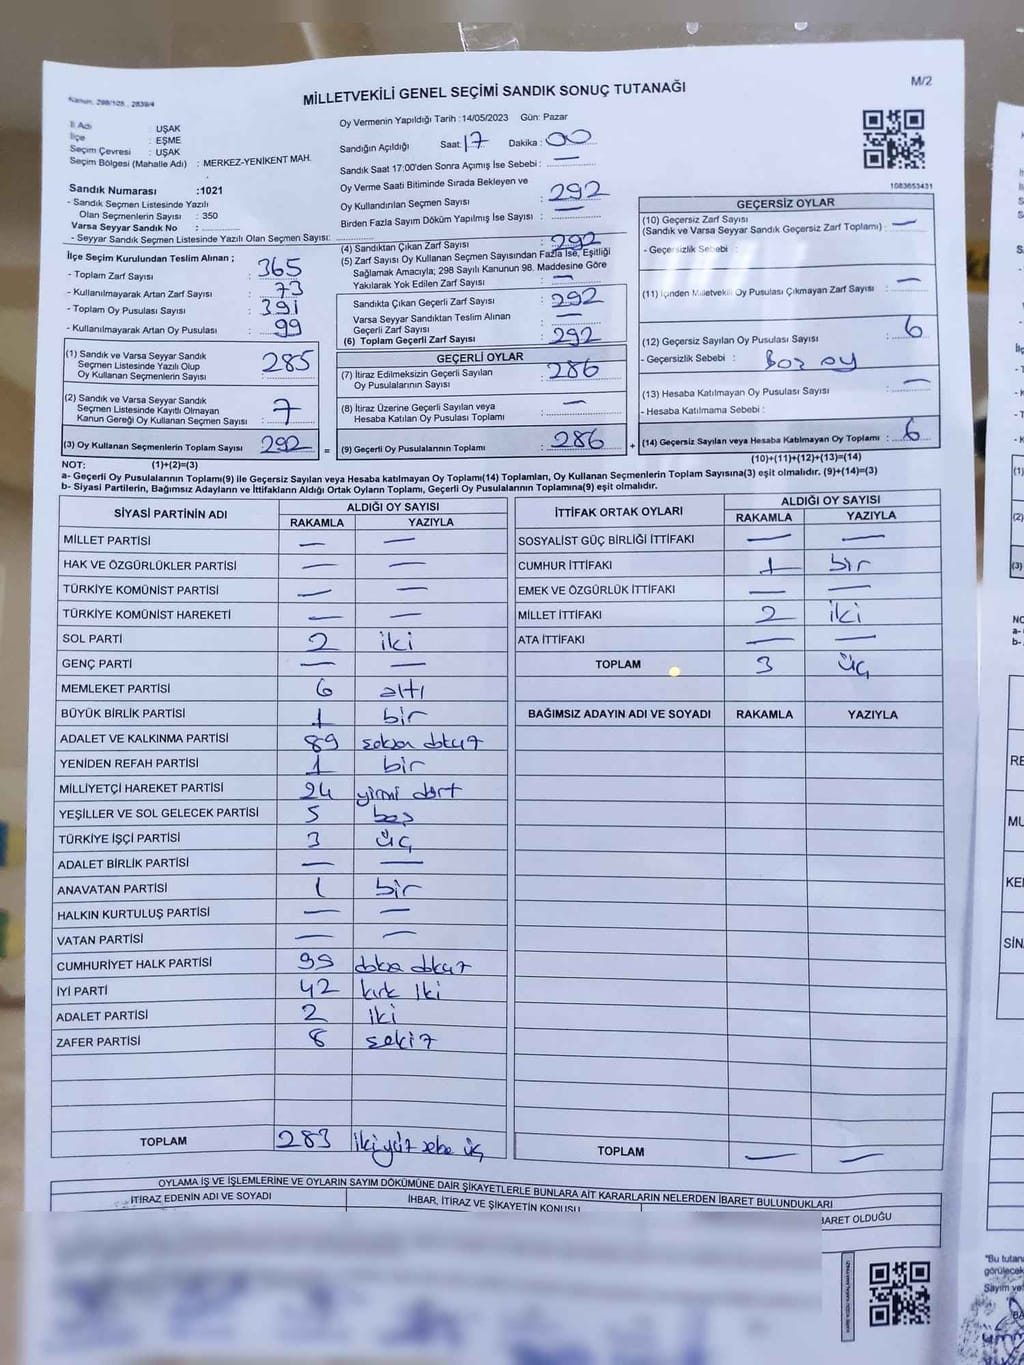 Kanun: 298/105 , 2839/4
MİLLETVEKİLİ GENEL SEÇİMİ SANDIK SONUÇ TUTANAĞI
M/2
İl Adı : UŞAK
İlçe : EŞME
Seçim Çevresi : UŞAK
Seçim Bölgesi (Mahalle Adı) : MERKEZ-YENİKENT MAH.
Sandık Numarası :1021
- Sandık Seçmen Listesinde Yazılı
Olan Seçmenlerin Sayısı : 350
Varsa Seyyar Sandık No :
- Seyyar Sandık Seçmen Listesinde Yazılı Olan Seçmen Sayısı:
Oy Vermenin Yapıldığı Tarih :14/05/2023 Gün: Pazar
Sandığın Açıldığı Saat: 17 Dakika : 00
Sandık Saat 17:00'den Sonra Açımış İse Sebebi : —
Oy Verme Saati Bitiminde Sırada Bekleyen ve
Oy Kullandırılan Seçmen Sayısı : 292
Birden Fazla Sayım Döküm Yapılmış İse Sayısı : —
1083653431
İlçe Seçim Kurulundan Teslim Alınan ;
- Toplam Zarf Sayısı : 365
- Kullanılmayarak Artan Zarf Sayısı : 73
- Toplam Oy Pusulası Sayısı : 391
- Kullanılmayarak Artan Oy Pusulası : 99
(1) Sandık ve Varsa Seyyar Sandık
Seçmen Listesinde Yazılı Olup
Oy Kullanan Seçmenlerin Sayısı : 285
(2) Sandık ve Varsa Seyyar Sandık
Seçmen Listesinde Kayıtlı Olmayan
Kanun Gereği Oy Kullanan Seçmen Sayısı : 7
(3) Oy Kullanan Seçmenlerin Toplam Sayısı : 292
(4) Sandıktan Çıkan Zarf Sayısı : 292
(5) Zarf Sayısı Oy Kullanan Seçmen Sayısından Fazla İse, Eşitliği
Sağlamak Amacıyla; 298 Sayılı Kanunun 98. Maddesine Göre
Yakılarak Yok Edilen Zarf Sayısı : —
Sandıkta Çıkan Geçerli Zarf Sayısı : 292
Varsa Seyyar Sandıktan Teslim Alınan
Geçerli Zarf Sayısı : —
(6) Toplam Geçerli Zarf Sayısı : 292
GEÇERLİ OYLAR
(7) İtiraz Edilmeksizin Geçerli Sayılan
Oy Pusulalarının Sayısı : 286
(8) İtiraz Üzerine Geçerli Sayılan veya
Hesaba Katılan Oy Pusulası Toplamı : —
= (9) Geçerli Oy Pusulalarının Toplamı : 286 +
GEÇERSİZ OYLAR
(10) Geçersiz Zarf Sayısı
(Sandık ve Varsa Seyyar Sandık Geçersiz Zarf Toplamı) : —
- Geçersizlik Sebebi :
(11) İçinden Milletvekili Oy Pusulası Çıkmayan Zarf Sayısı : —
(12) Geçersiz Sayılan Oy Pusulası Sayısı : 6
- Geçersizlik Sebebi : Boz oy
(13) Hesaba Katılmayan Oy Pusulası Sayısı : —
- Hesaba Katılmama Sebebi :
(14) Geçersiz Sayılan veya Hesaba Katılmayan Oy Toplamı : 6
NOT: (1)+(2)=(3)
(10)+(11)+(12)+(13)=(14)
a- Geçerli Oy Pusulalarının Toplamı(9) ile Geçersiz Sayılan veya Hesaba Katılmayan Oy Toplamı(14) Toplamları, Oy Kullanan Seçmenlerin Toplam Sayısına(3) eşit olmalıdır. (9)+(14)=(3)
b- Siyasi Partilerin, Bağımsız Adayların ve İttifakların Aldığı Ortak Oyların Toplamı, Geçerli Oy Pusulalarının Toplamına(9) eşit olmalıdır.
SİYASİ PARTİNİN ADI ALDIĞI OY SAYISI
RAKAMLA YAZIYLA
MİLLET PARTİSİ — —
HAK VE ÖZGÜRLÜKLER PARTİSİ — —
TÜRKİYE KOMÜNİST PARTİSİ — —
TÜRKİYE KOMÜNİST HAREKETİ — —
SOL PARTİ 2 iki
GENÇ PARTİ — —
MEMLEKET PARTİSİ 6 altı
BÜYÜK BİRLİK PARTİSİ 1 bir
ADALET VE KALKINMA PARTİSİ 89 seksen dokuz
YENİDEN REFAH PARTİSİ 1 bir
MİLLİYETÇİ HAREKET PARTİSİ 24 yirmi dört
YEŞİLLER VE SOL GELECEK PARTİSİ 5 beş
TÜRKİYE İŞÇİ PARTİSİ 3 üç
ADALET BİRLİK PARTİSİ — —
ANAVATAN PARTİSİ 1 bir
HALKIN KURTULUŞ PARTİSİ — —
VATAN PARTİSİ — —
CUMHURİYET HALK PARTİSİ 99 doksan dokuz
İYİ PARTİ 42 kırk iki
ADALET PARTİSİ 2 iki
ZAFER PARTİSİ 8 sekiz
TOPLAM 283 ikiyüz seksen üç
İTTİFAK ORTAK OYLARI ALDIĞI OY SAYISI
RAKAMLA YAZIYLA
SOSYALİST GÜÇ BİRLİĞİ İTTİFAKI — —
CUMHUR İTTİFAKI 1 bir
EMEK VE ÖZGÜRLÜK İTTİFAKI — —
MİLLET İTTİFAKI 2 iki
ATA İTTİFAKI — —
TOPLAM 3 üç
BAĞIMSIZ ADAYIN ADI VE SOYADI RAKAMLA YAZIYLA
TOPLAM — —
OYLAMA İŞ VE İŞLEMLERİNE VE OYLARIN SAYIM DÖKÜMÜNE DAİR ŞİKAYETLERLE BUNLARA AİT KARARLARIN NELERDEN İBARET BULUNDUKLARI
İTİRAZ EDENİN ADI VE SOYADI
İHBAR, İTİRAZ VE ŞİKAYETİN KONUSU
İBARET OLDUĞU